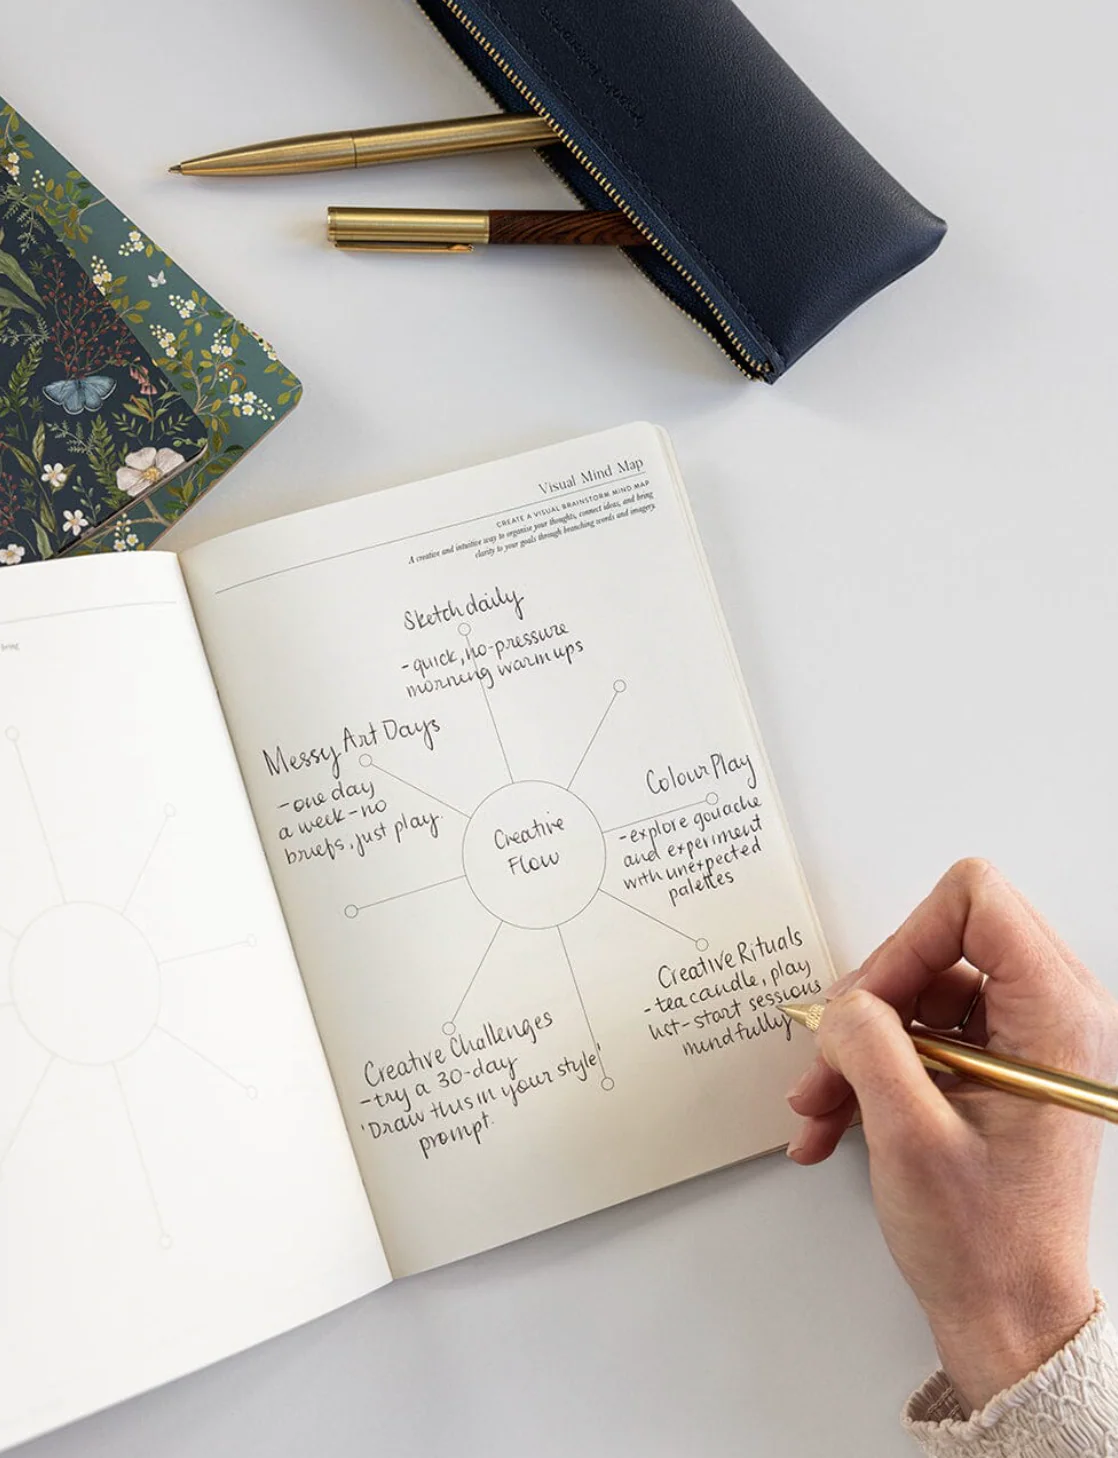 Visual Mind Map
CREATE A VISUAL BRAINSTORM MIND MAP
A creative and intuitive way to organise your thoughts, connect ideas, and bring
clarity to your goals through branching words and imagery.
Sketch daily
- quick, no-pressure
morning warm ups
Messy Art Days
- one day
a week - no
briefs, just play.
Colour Play
- explore gouache
and experiment
with unexpected
palettes
Creative
Flow
Creative Rituals
- tea candle, play
- start sessions
mindfully
Creative Challenges
- try a 30-day
'Draw this in your style'
prompt.
bring